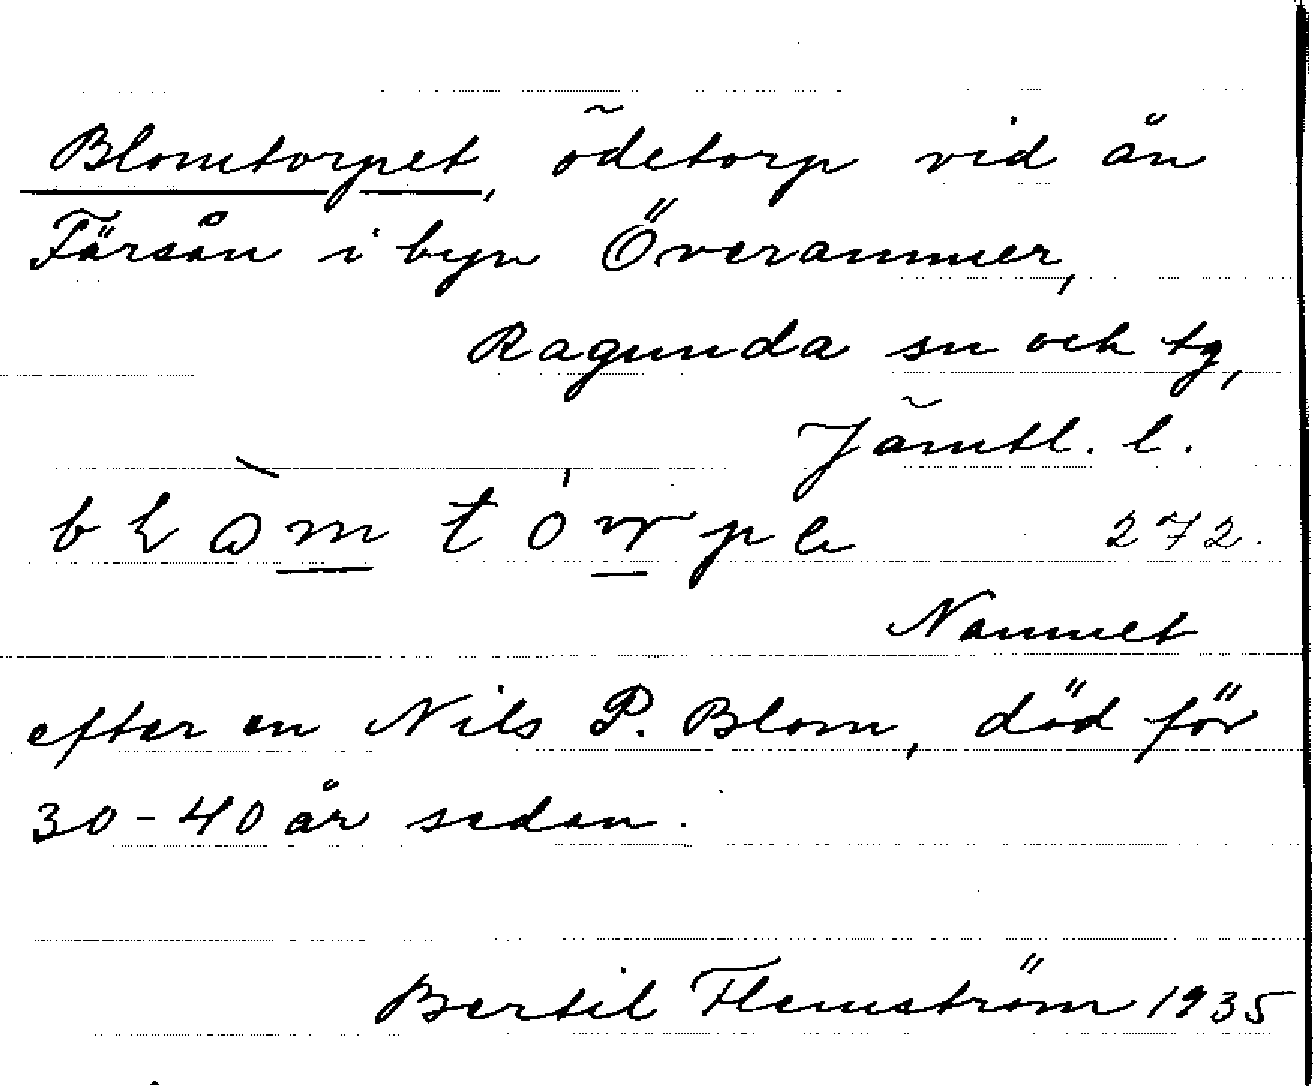 Blomtorpet, ödetorp vid ån
Färsån i byn Överammer,
Ragunda sn och tg,
Jämtl. l.
272.
Namnet
efter en Nils P. Blom, död för
30-40 år sedan.
Bertil Flemström 1935